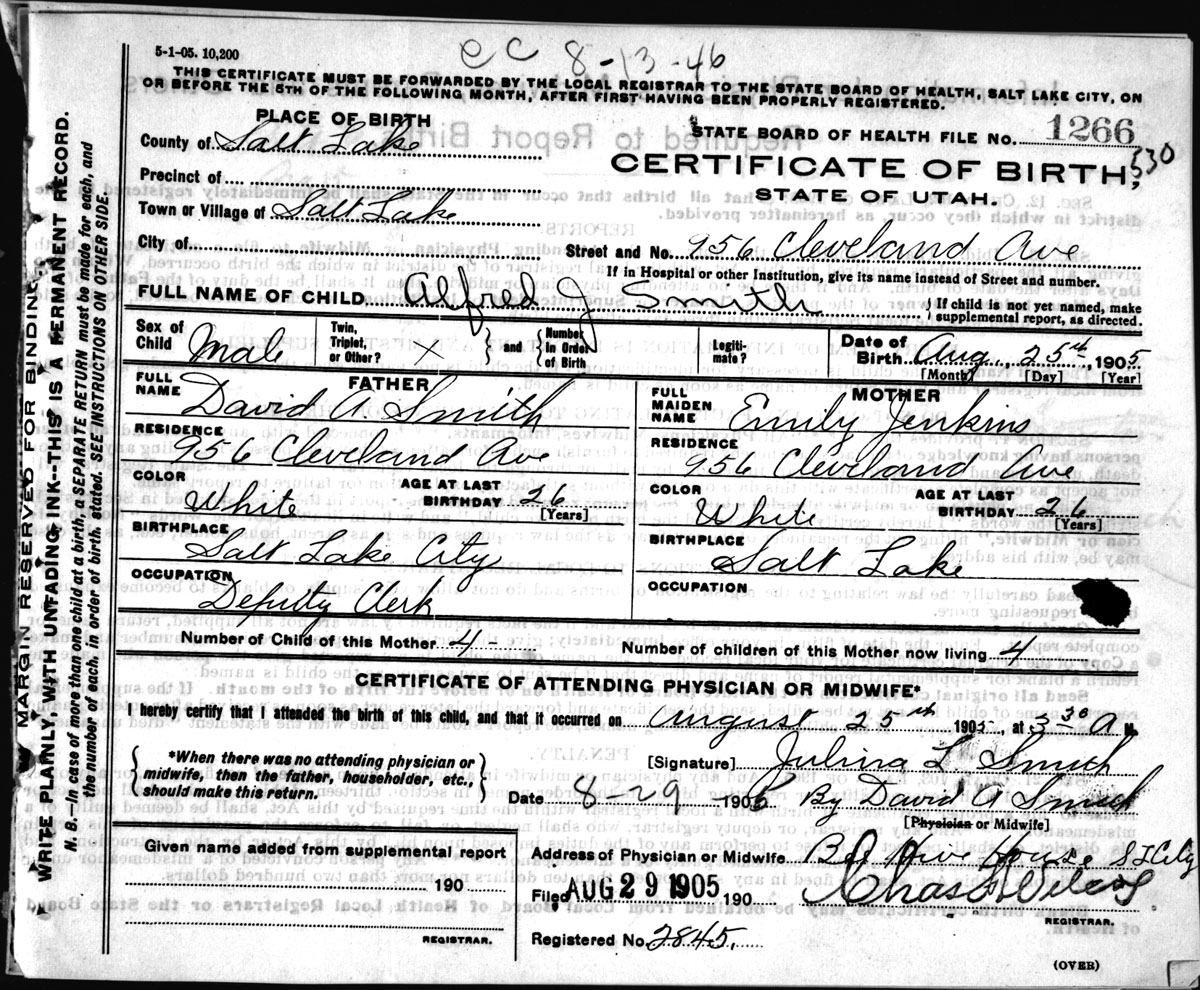 5-1-05. 10,200
EC 8-13-46
THIS CERTIFICATE MUST BE FORWARDED BY THE LOCAL REGISTRAR TO THE STATE BOARD OF HEALTH, SALT LAKE CITY, ON
OR BEFORE THE 5TH OF THE FOLLOWING MONTH, AFTER FIRST HAVING BEEN PROPERLY REGISTERED.
PLACE OF BIRTH
STATE BOARD OF HEALTH FILE NO. 1266
County of Salt Lake
CERTIFICATE OF BIRTH, 530
Precinct of
STATE OF UTAH.
Town or Village of Salt Lake
City of
Street and No. 956 Cleveland Ave
If in Hospital or other Institution, give its name instead of Street and number.
FULL NAME OF CHILD. Alfred J Smith { If child is not yet named, make supplemental report, as directed.
Sex of Child Male Twin, Triplet, or Other? X } and { Number in Order of Birth Legiti-mate? Date of Birth Aug, 25th, 1905
[Month] [Day] [Year]
FATHER MOTHER
FULL NAME David A. Smith FULL MAIDEN NAME Emily Jenkins
RESIDENCE 956 Cleveland Ave RESIDENCE 956 Cleveland Ave
COLOR White AGE AT LAST BIRTHDAY 26 [Years] COLOR White AGE AT LAST BIRTHDAY 26 [Years]
BIRTHPLACE Salt Lake City BIRTHPLACE Salt Lake
OCCUPATION Deputy Clerk OCCUPATION
Number of Child of this Mother 4- Number of children of this Mother now living 4
CERTIFICATE OF ATTENDING PHYSICIAN OR MIDWIFE*
I hereby certify that I attended the birth of this child, and that it occurred on August 25th 1905, at 3 30 A M.
*When there was no attending physician or
midwife, then the father, householder, etc.,
should make this return.
[Signature] Julina L Smith
Date 8-29 1905 By David A Smith
[Physician or Midwife]
Given name added from supplemental report
190
REGISTRAR.
Address of Physician or Midwife Bee Hive House S L City
Filed AUG 29 1905 190
REGISTRAR.
Registered No. 2845.
(OVER)
MARGIN RESERVED FOR BINDING
WRITE PLAINLY, WITH UNFADING INK—THIS IS A PERMANENT RECORD.
N. B.—In case of more than one child at a birth, a SEPARATE RETURN must be made for each, and
the number of each, in order of birth, stated. SEE INSTRUCTIONS ON OTHER SIDE.